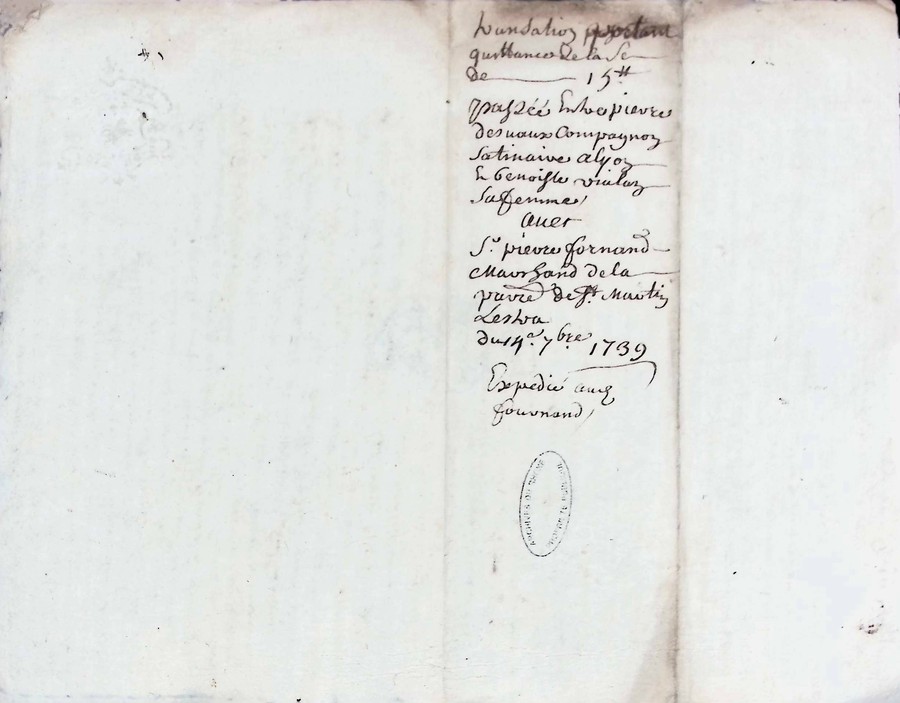 transation portant
quittance de la Se
de 15tt
passée Entre pierre
desuaux Compagnon
satinaire alyon
Et benoiste vialon
sa femme
auec
Sr. pierre fornand
Marchand de la
parrè de St. Martin
Lestra
du 14e. 7bre 1739
Expedié aud
fournand
ARCHIVES DU